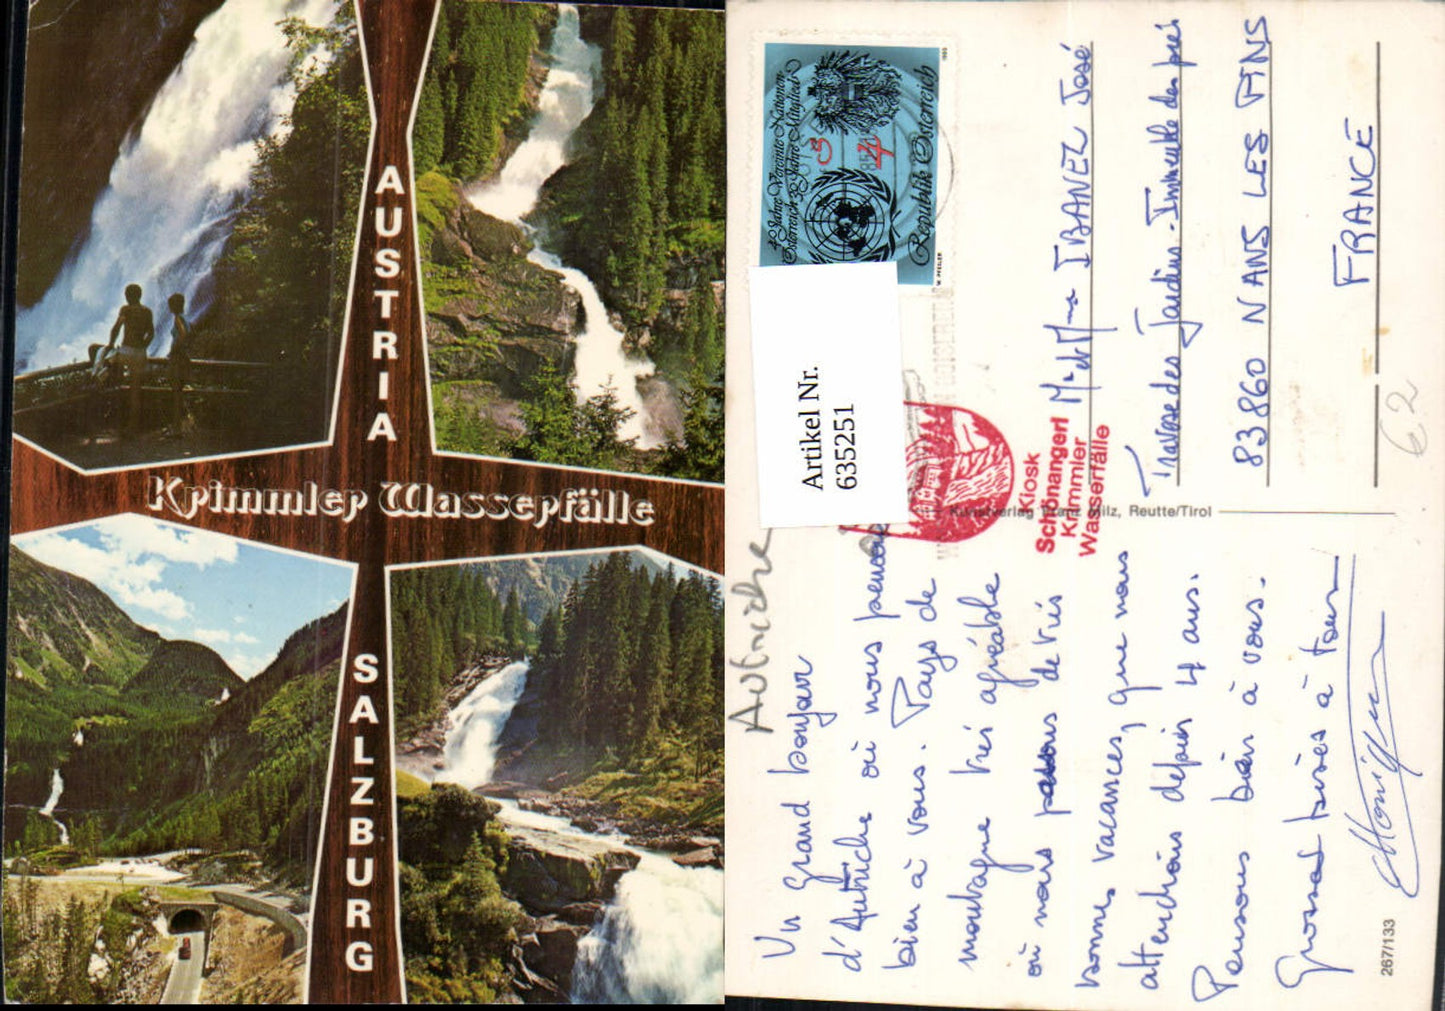 AUSTRIA
Krimmler Wasserfälle
SALZBURG
40 Jahre Vereinte Nationen
Österreich 30 Jahre Mitglied
S 4
Republik Österreich
W. PFEILER
1985
Artikel Nr.
635251
Kiosk
Schönangerl
Krimmler
Wasserfälle
Reutte/Tirol
Autriche
Un grand bonjour
d'Autriche où nous pensons
bien à vous. Pays de
montagne très agréable
où nous de très
bonnes vacances, que nous
attendions depuis 4 ans.
Pensons bien à vous.
Grosses bises à tous
Monique
IBANEZ José
Traverse des Jardins - Immeuble des
83860 NANS LES PINS
FRANCE
62
267/133